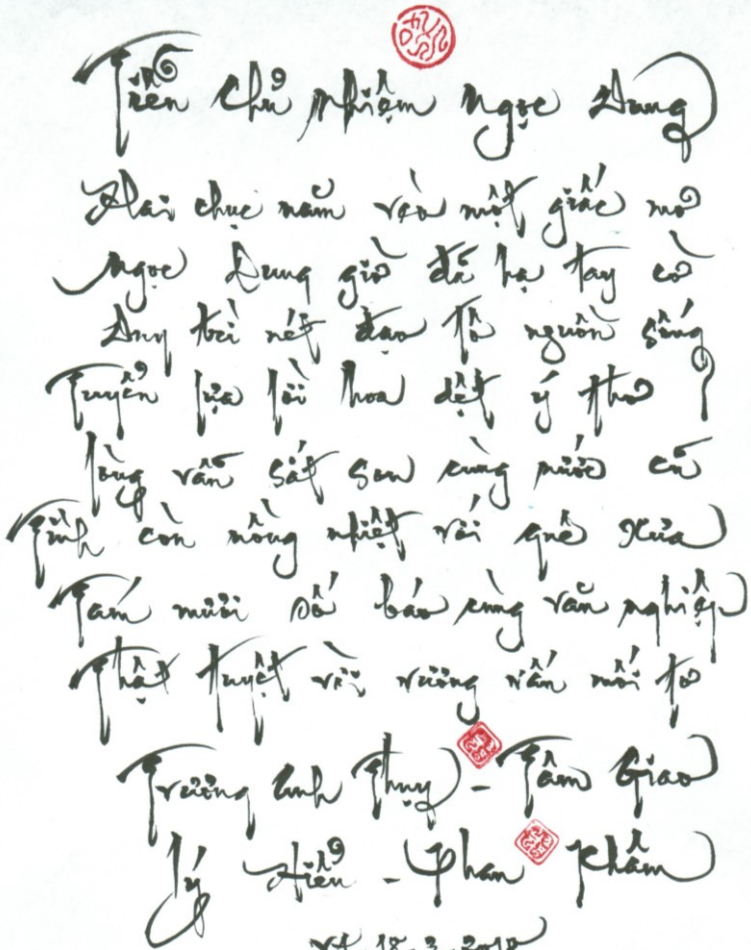 Tiễn chủ nhiệm Ngọc Dung
Hai chục năm vèo một giấc mơ
Ngọc Dung giờ đã hạ tay cờ
Duy trì nét đạo tô nguồn sống
Tuyển lựa lời hoa dệt ý thơ
Lòng vẫn sắt son cùng nước cũ
Tình còn nồng nhiệt với quê xưa
Tám mươi số báo cùng văn nghiệp
Thật tuyệt vời vương vấn mối tơ
Trương Anh Thụy - Tâm Giao
Lý Hiểu - Phan Khâm
VA 18.3.2018